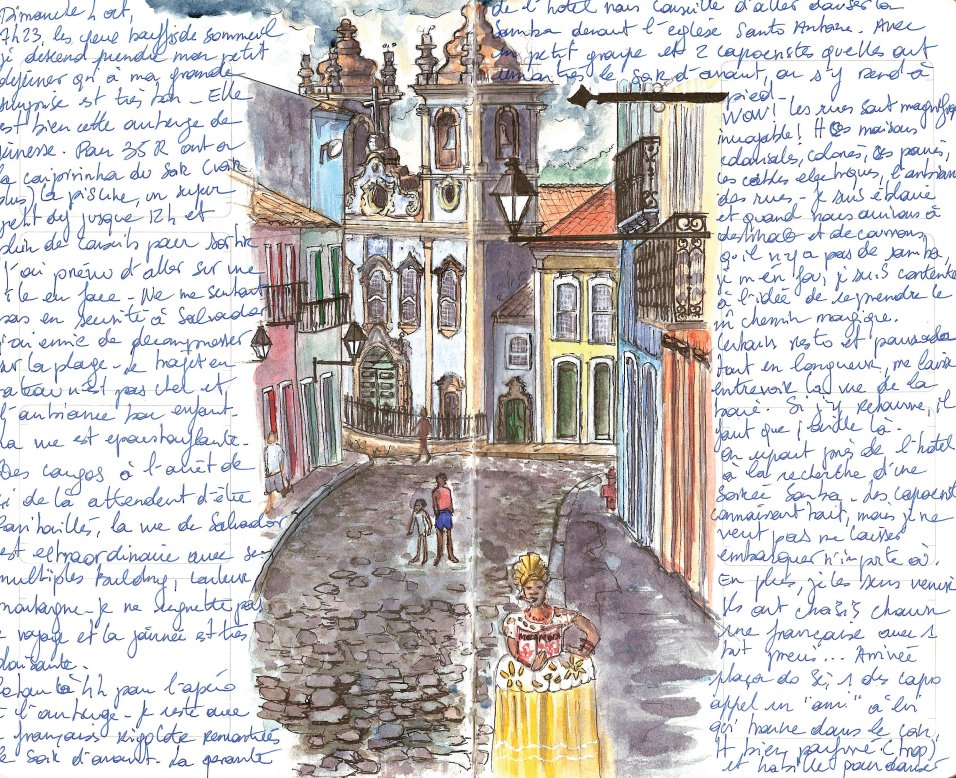 Dimanche 1 oct,
7h23, les yeux bouffis de sommeil
je descend prendre mon petit
déjeuner qui à ma grande
surprise est très bon - Elle
est bien cette auberge de
jeunesse. Pour 35 R ont a
la caipirinha du soir
plus la piscine, un super
petit dej jusque 12h et
plein de conseils pour sortir
J'ai prévu d'aller sur une
île en face - Ne me sentant
pas en sécurité à Salvador
j'ai envie de décompresser
sur la plage - Le trajet en
bateau n'est pas cher et
l'ambiance bon enfant
la vue est époustouflante -
Des cargos à l'arrêt de
ci de là attendent d'être
la vue de Salvador
est extraordinaire avec ses
multiples building, couleurs
montagne - je ne regrette pas
le voyage et la journée est très
plaisante.
Retour à 4h pour l'apéro
à l'auberge - Je reste avec
françaises rigolote rencontrées
le soir d'avant. La gérante
de l'hotel nous conseille d'aller danser la
samba devant l'église Santo Antoine. Avec
le petit groupe et 2 capoeriste qu'elles ont
le soir d'avant, on s'y rend à
pied -
WOW! Les rues sont magnifiques
incroyable! Les maisons
coloniales, colorés, les pavés,
les cables electriques, l'ambiance
des rues - Je suis éblouie
et quand nous arrivons à
destinat° et découvrons
qu'il n'y a pas de samba,
je m'en fou, je suis contente
à l'idée de reprendre le
m chemin magique.
Certain resto et pousada
tout en longueur, me laisse
entrevoir la vue de la
baie. Si j'y retourne, il
faut que j'aille là.
On repart près de l'hotel
à la recherche d'une
soirée samba - les capoerist
connaissent tout, mais je ne
veut pas me laisser
embarquer n'importe où.
En plus, je les sens venir
Ils ont choisis chacun
une française avec 1
but precis... Arrivée
plaça do Sé, 1 des capo
appel un "ami" à lui
qui traine dans le coin,
H bien parfumé (trop)
et habillé pour danser